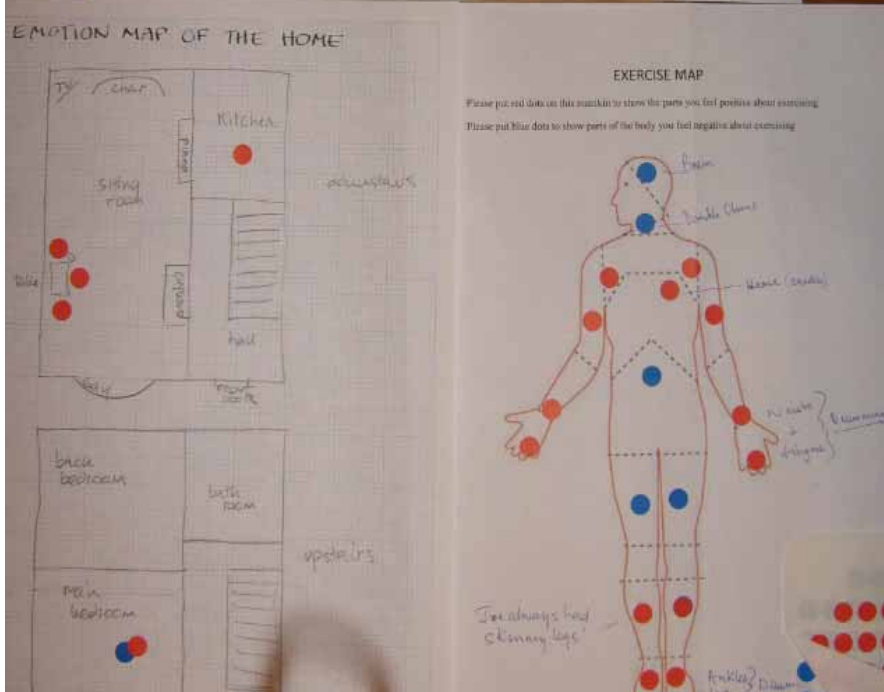 EMOTION MAP OF THE HOME
TV
chair
Kitchen
Piano
sitting
room
downstairs
table
cupboard
hall
Bay
front
door
back
bedroom
bath
room
upstairs
main
bedroom
EXERCISE MAP
Please put red dots on this manikin to show the parts you feel positive about exercising
Please put blue dots to show parts of the body you feel negative about exercising
Brain
Double Chins
Wrists
+
fingers
I've always had
skinny legs'
Ankles